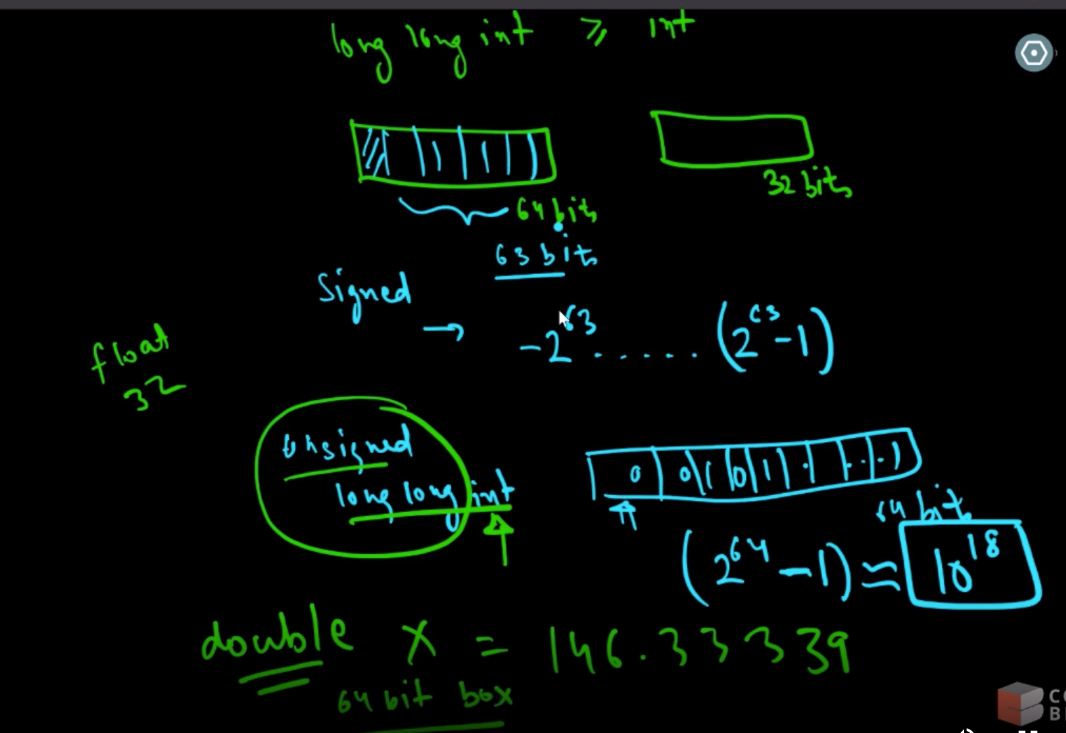 long long int ≥ int
64 bits
32 bits
63 bits
Signed → -2^63 ...... (2^63-1)
float
32
unsigned
long long int
0 0 1 0 1 . . . . 1
64 bit
(2^64-1) ≈ 10^18
double x = 146.33339
64 bit box